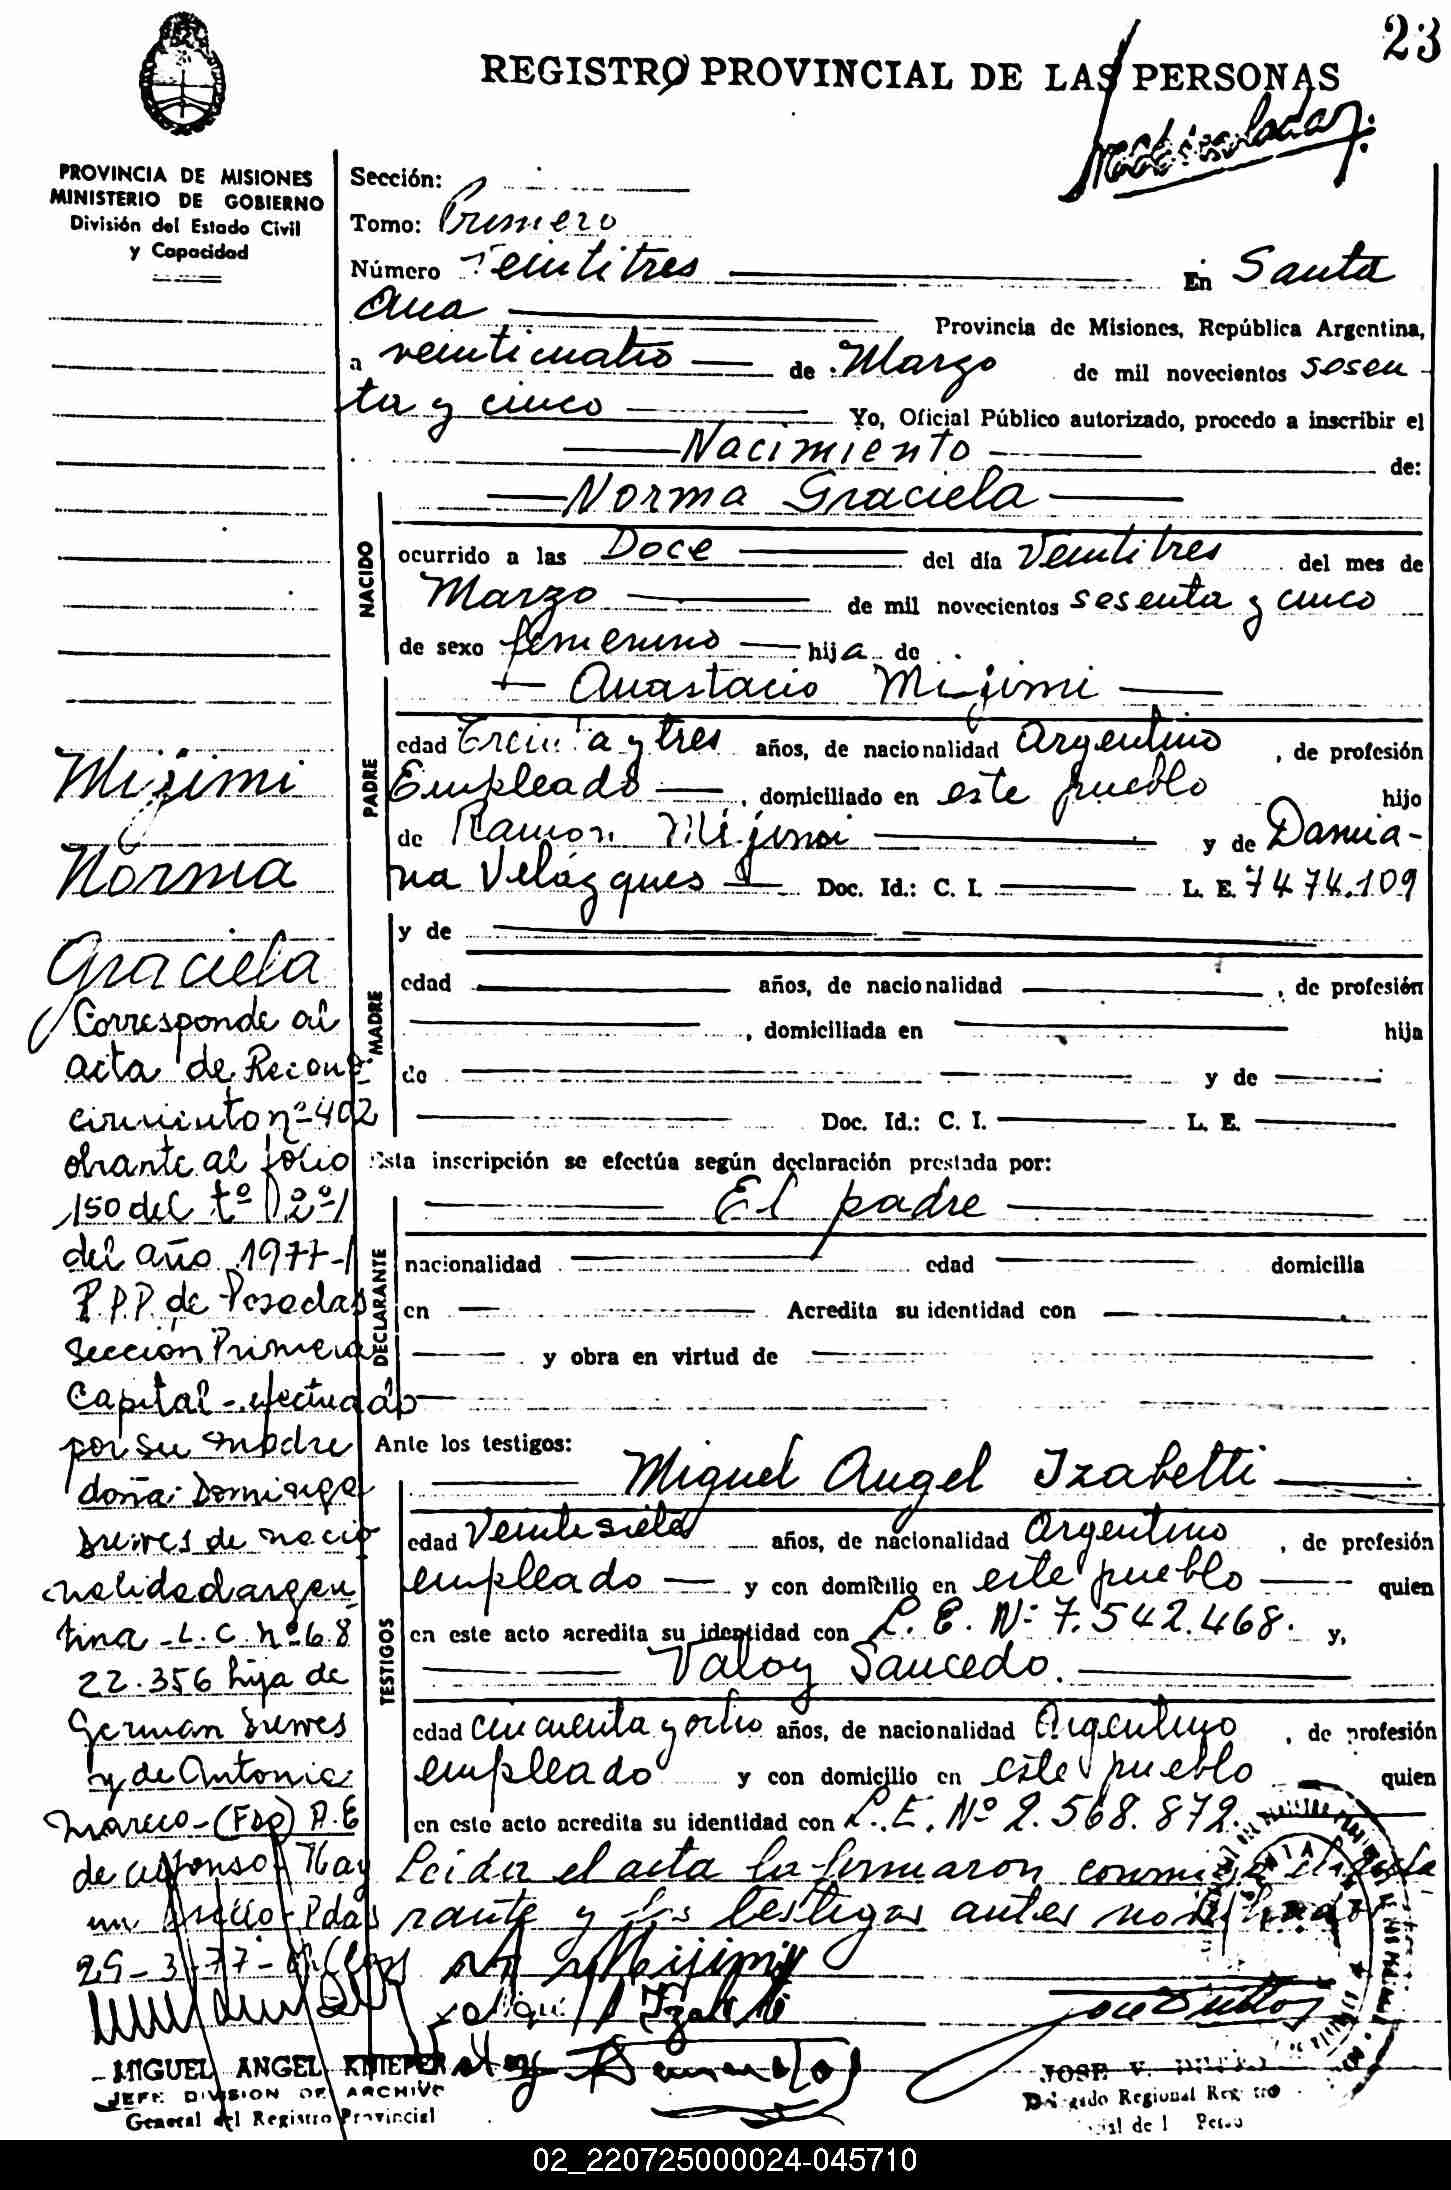 23
REGISTRO PROVINCIAL DE LAS PERSONAS
Matriculada
PROVINCIA DE MISIONES
MINISTERIO DE GOBIERNO
División del Estado Civil
y Capacidad
Sección:
Tomo: Primero
Número Veintitres En Santa
Ana Provincia de Misiones, República Argentina,
a veinticuatro de Marzo de mil novecientos sesen
ta y cinco Yo, Oficial Público autorizado, procedo a inscribir el
Nacimiento de:
Norma Graciela
NACIDO
ocurrido a las Doce del día Veintitres del mes de
Marzo de mil novecientos sesenta y cinco
de sexo femenino hija de
Anastacio Mijimi
PADRE
edad Treinta y tres años, de nacionalidad Argentino, de profesión
Empleado, domiciliado en este pueblo hijo
de Ramon Mijimi y de Damia-
na Velázques Doc. Id.: C. I. L. E. 7474.109
MADRE
y de
edad años, de nacionalidad , de profesión
, domiciliada en hija
de y de
Doc. Id.: C. I. L. E.
Esta inscripción se efectúa según declaración prestada por:
El padre
DECLARANTE
nacionalidad edad domicilia
en Acredita su identidad con
y obra en virtud de
Ante los testigos:
Miguel Angel Izabetti
TESTIGOS
edad Veintisiete años, de nacionalidad Argentino, de profesión
empleado y con domicilio en este pueblo quien
en este acto acredita su identidad con L. E. Nº 7.542.468. y,
Valoy Saucedo.
edad cincuenta y ocho años, de nacionalidad Argentino, de profesión
empleado y con domicilio en este pueblo quien
en este acto acredita su identidad con L. E. Nº 2.568.872.
Leida el acta la firmaron conmigo el decla
rante y los testigos antes nombrados
Mijimi
Norma
Graciela
Corresponde al
acta de Recono
cimiento nº 402
obrante al folio
150 del tº 2º
del año 1977-
R.P.P. de Posadas
Sección Primera
Capital - efectuado
por su madre
doña Dominga
de nacio
nalidad argen
tina - L.C. nº 6.8
22.356 hija de
German
y de Antonia
Mareco - (Fdo) A.E
de Alfonso - Hay
un sello - Pdas
29-3-77-
A Mijimi
MIGUEL ANGEL KNIEPER
JEFE DIVISION DE ARCHIVO
General del Registro Provincial
JOSE V.
Delegado Regional Registro
02_220725000024-045710